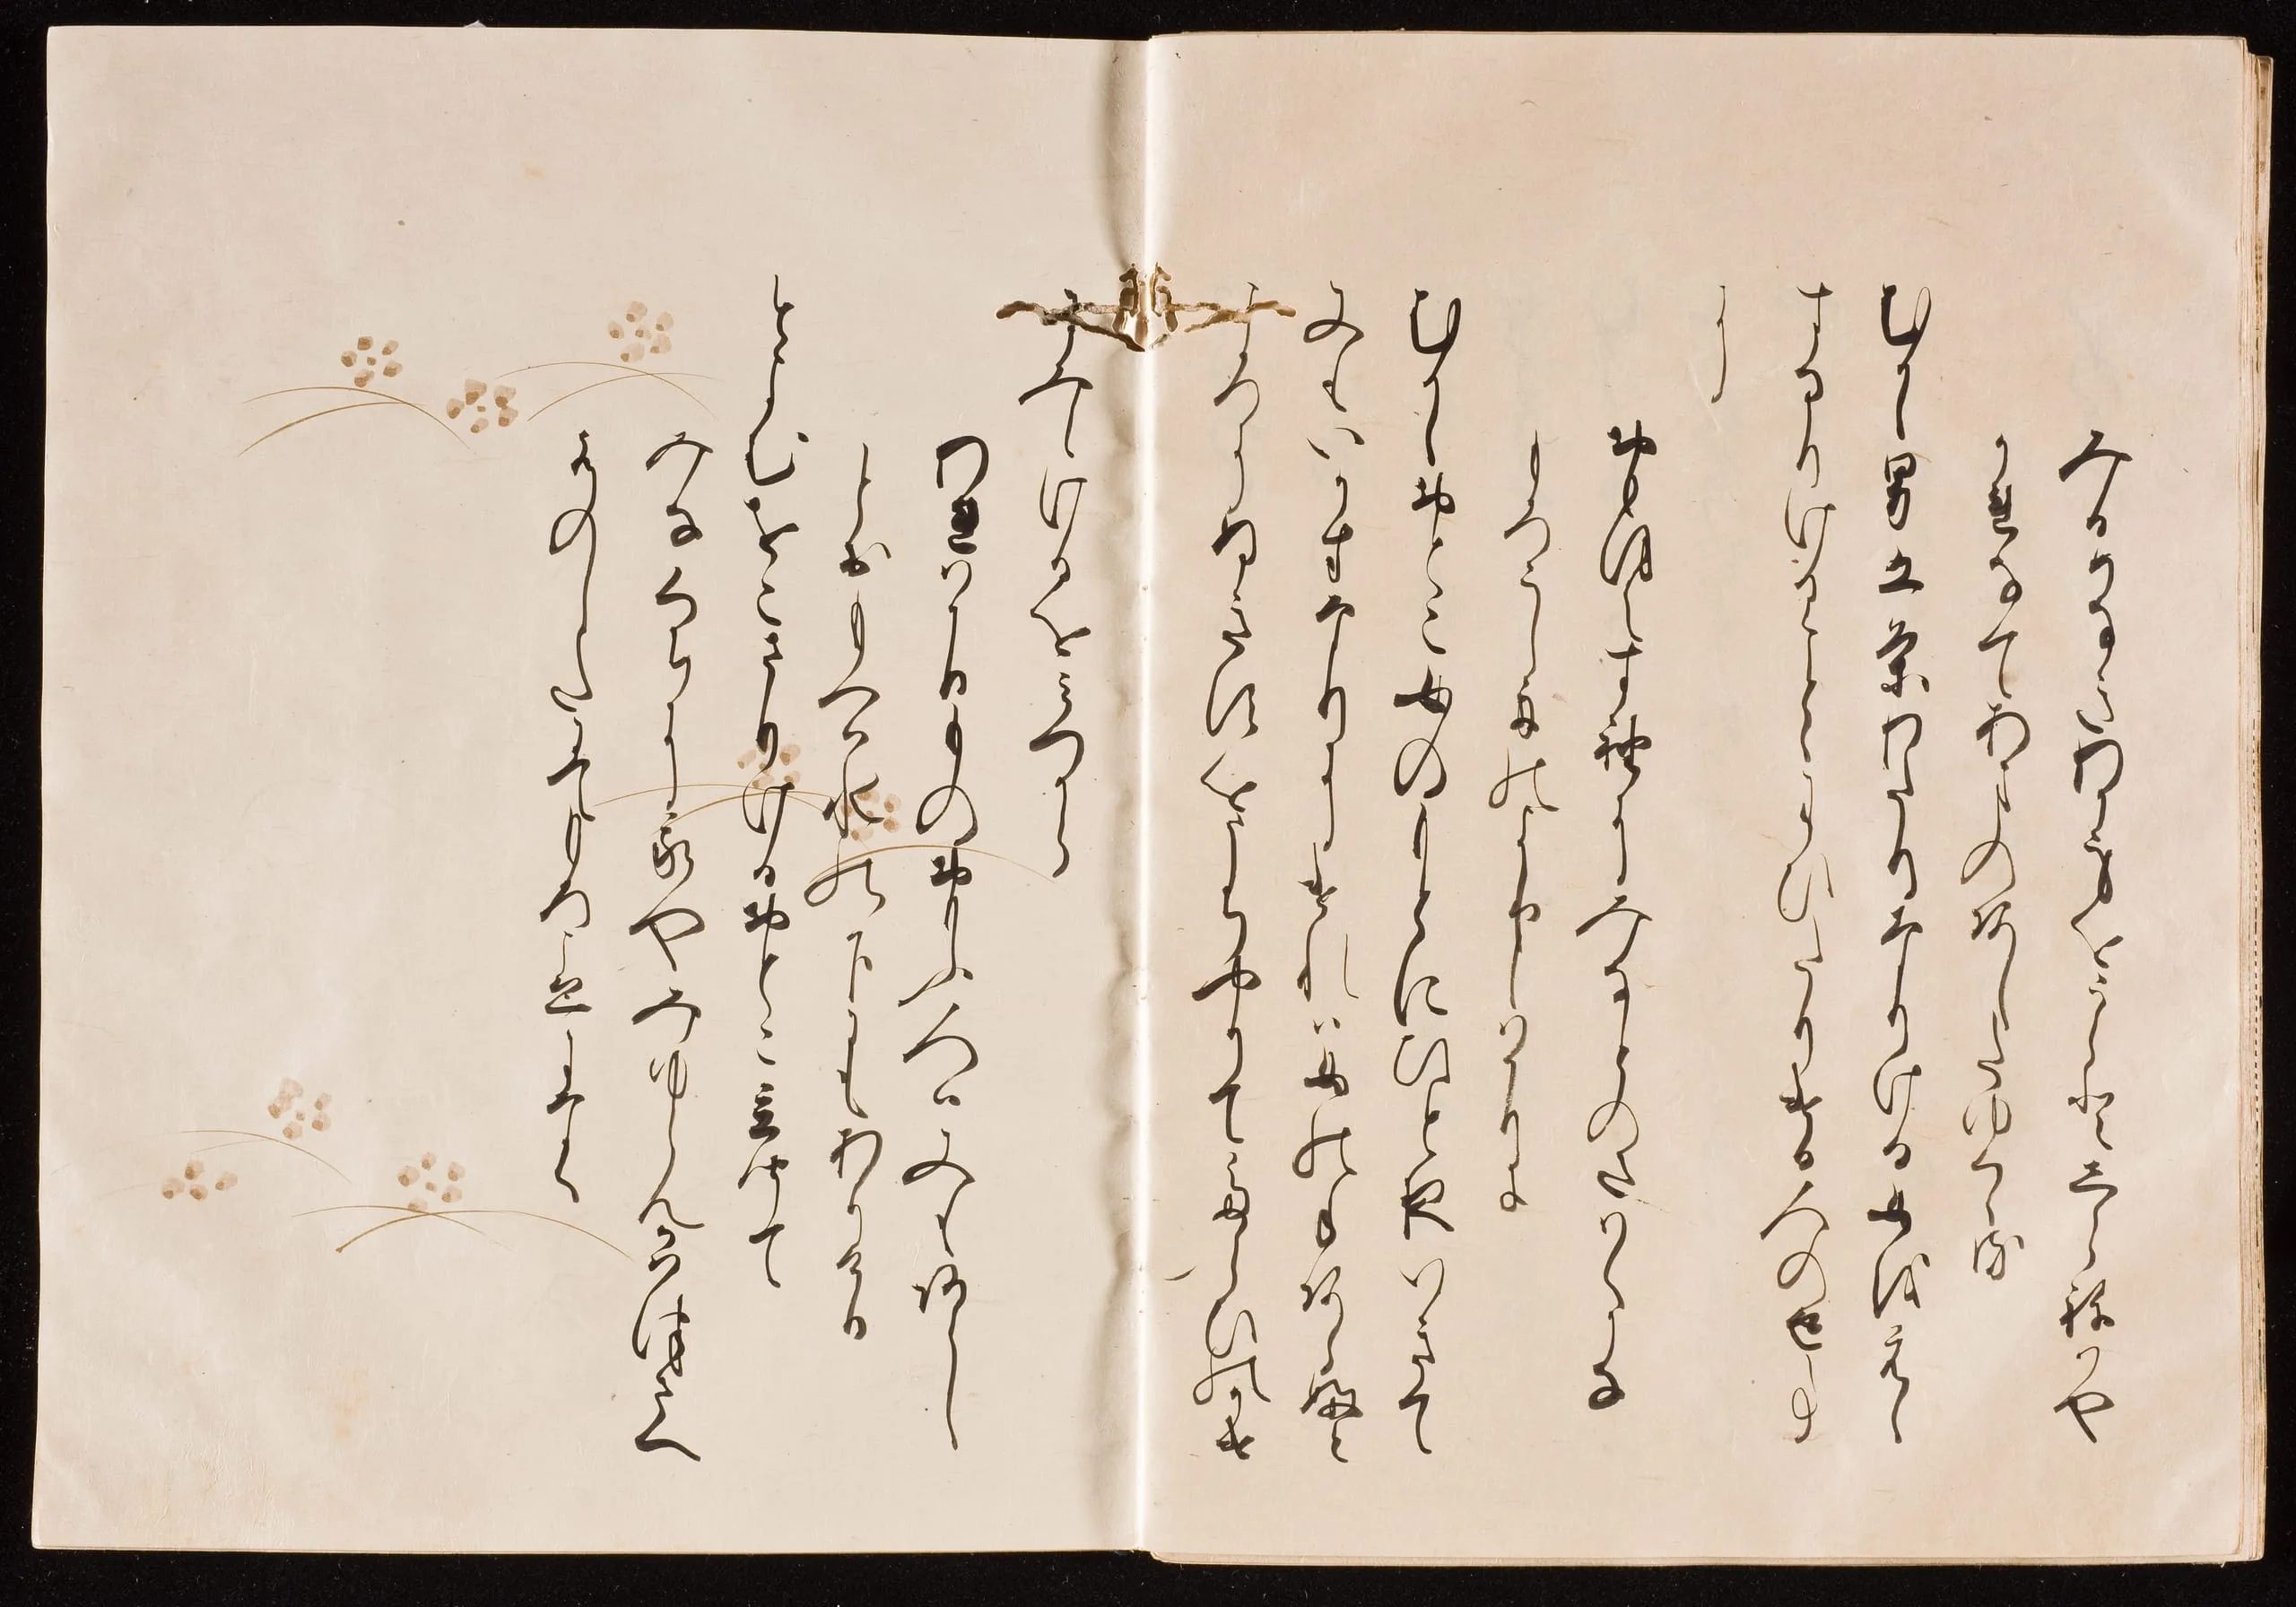 みるめなきわか身をうらとしらねはや
かれなてあまのあしたゆくくる
むかし男五条わたりなりける女をえ
すなりにけることとわひたりける人の返こ
とに
おもほえす袖にみなとのさはくかな
もろこし舟のよりしはかりに
むかしおとこ女のもとにひとよいきて
又もいかすなりにけれは女のてあら
ふ所にぬきすをうちやりてたらひのかけに
みえけるをみつから
我はかり物おもふ人は又もあらし
とおもへは水のしたにもありけり
とよむをこさりけるおとこたちきゝて
みなくちにわれや見ゆらんかはつさへ
水のしたにてもろこゑになく